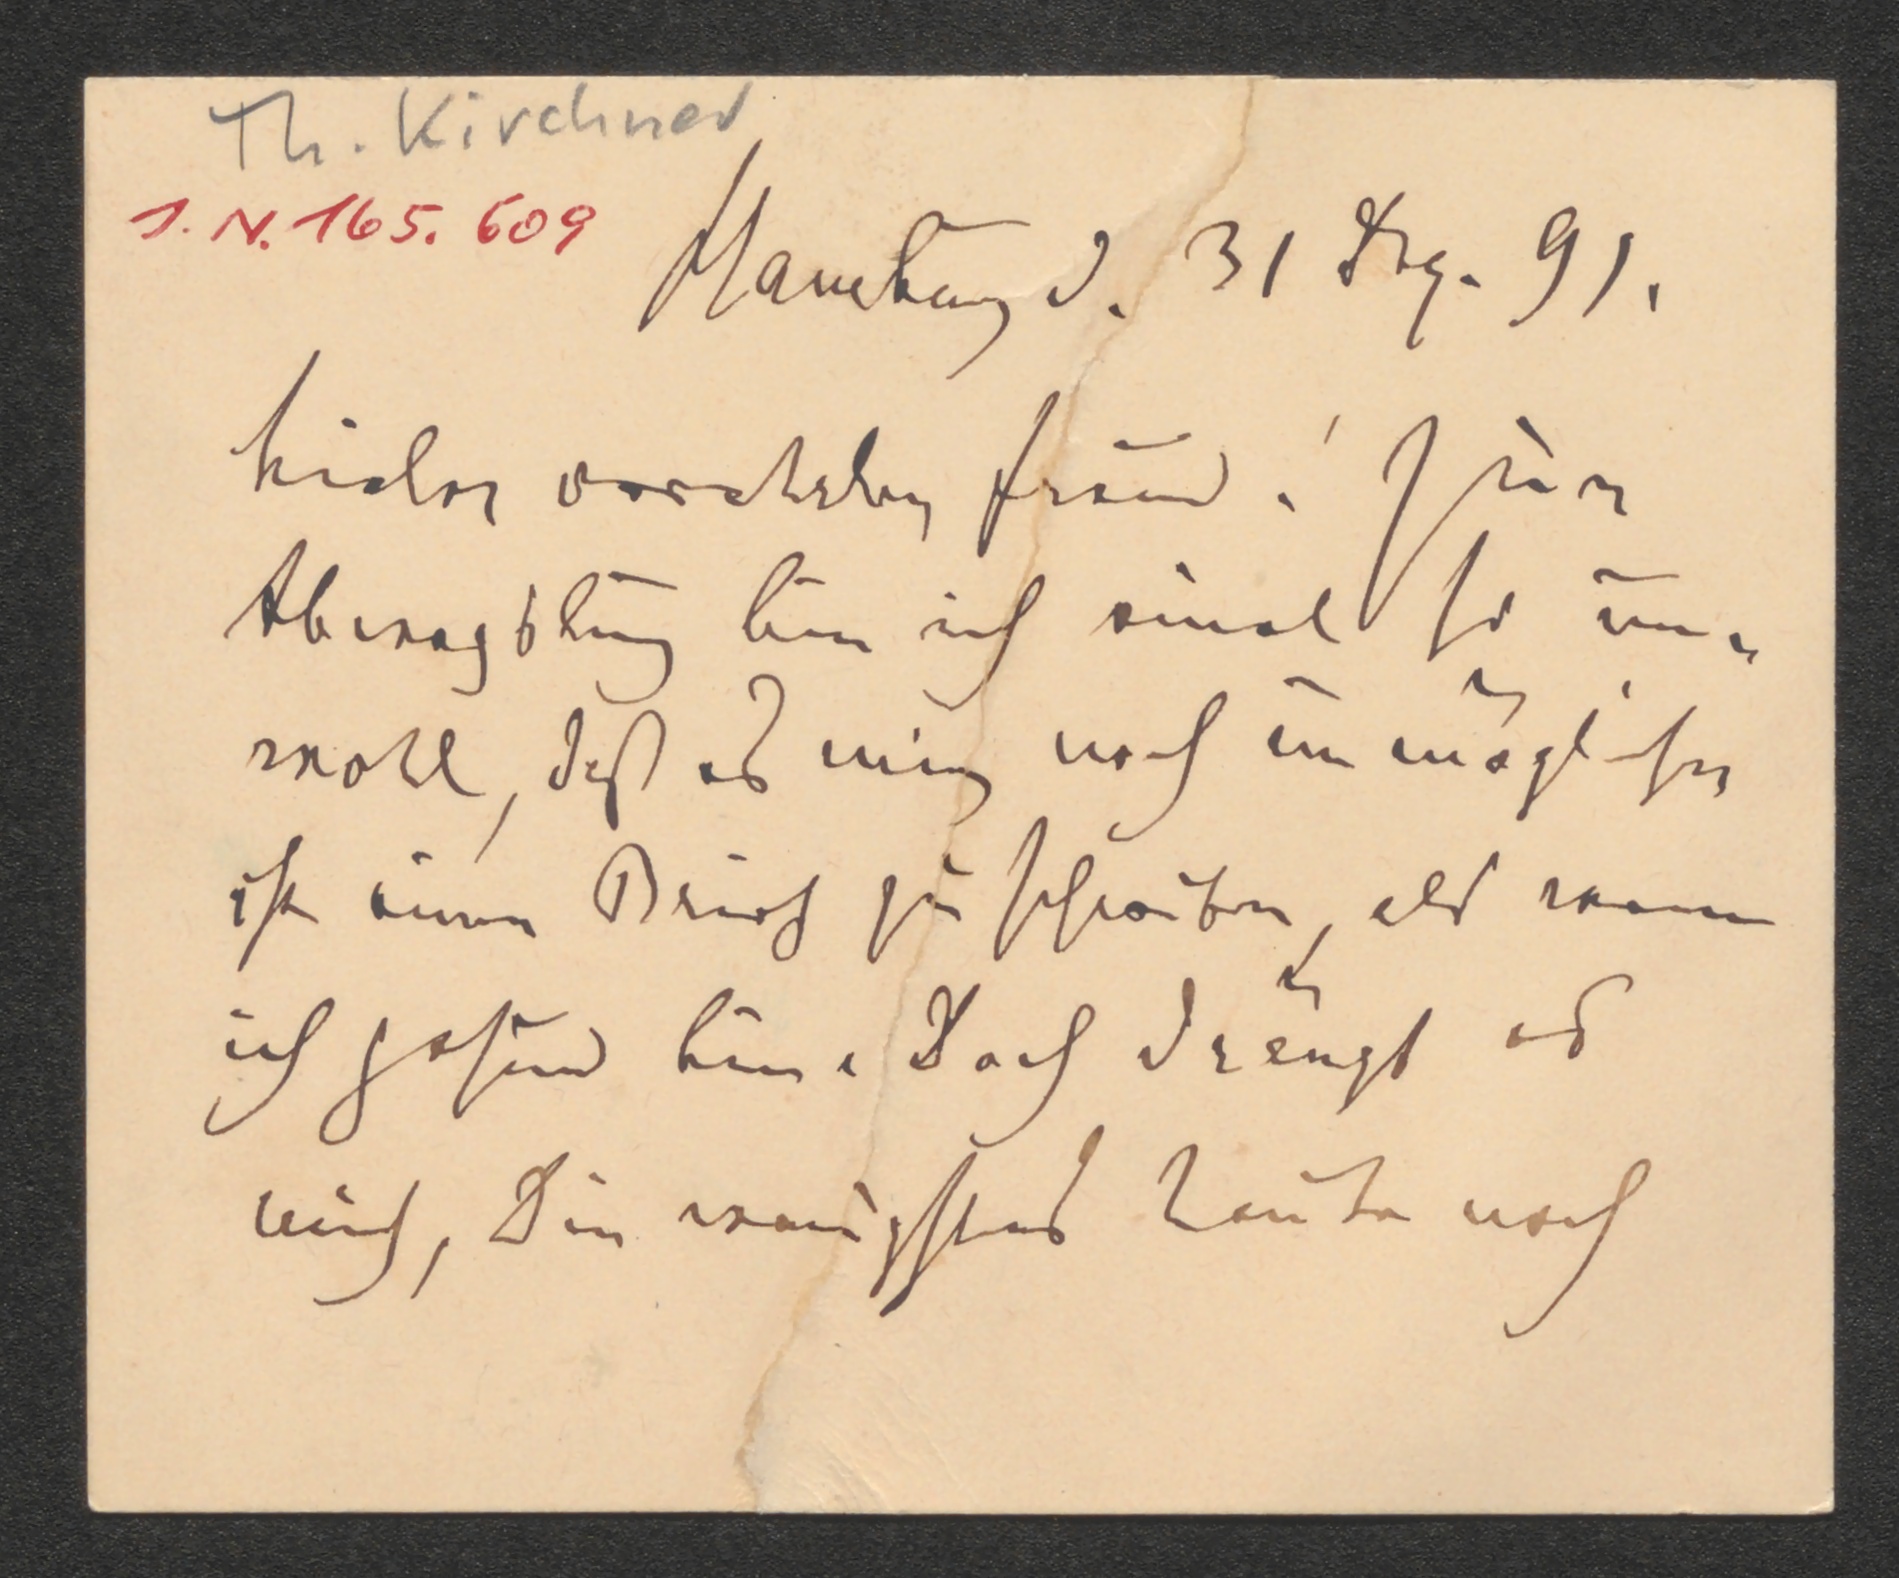 Th. Kirchner
I. N. 165.609
Hamburg d. 31 Dez. 91.
Lieber verehrter Freund! Zur
Abwechslung bin ich einmal so un-
wohl, daß es mir noch unmöglicher
ist einen Brief zu schreiben, als wenn
ich gesund bin. Doch drängt es
mich, Dir wenigstens heute noch